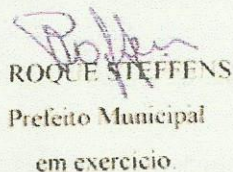 ROQUE STEFFENS
Prefeito Municipal
em exercício